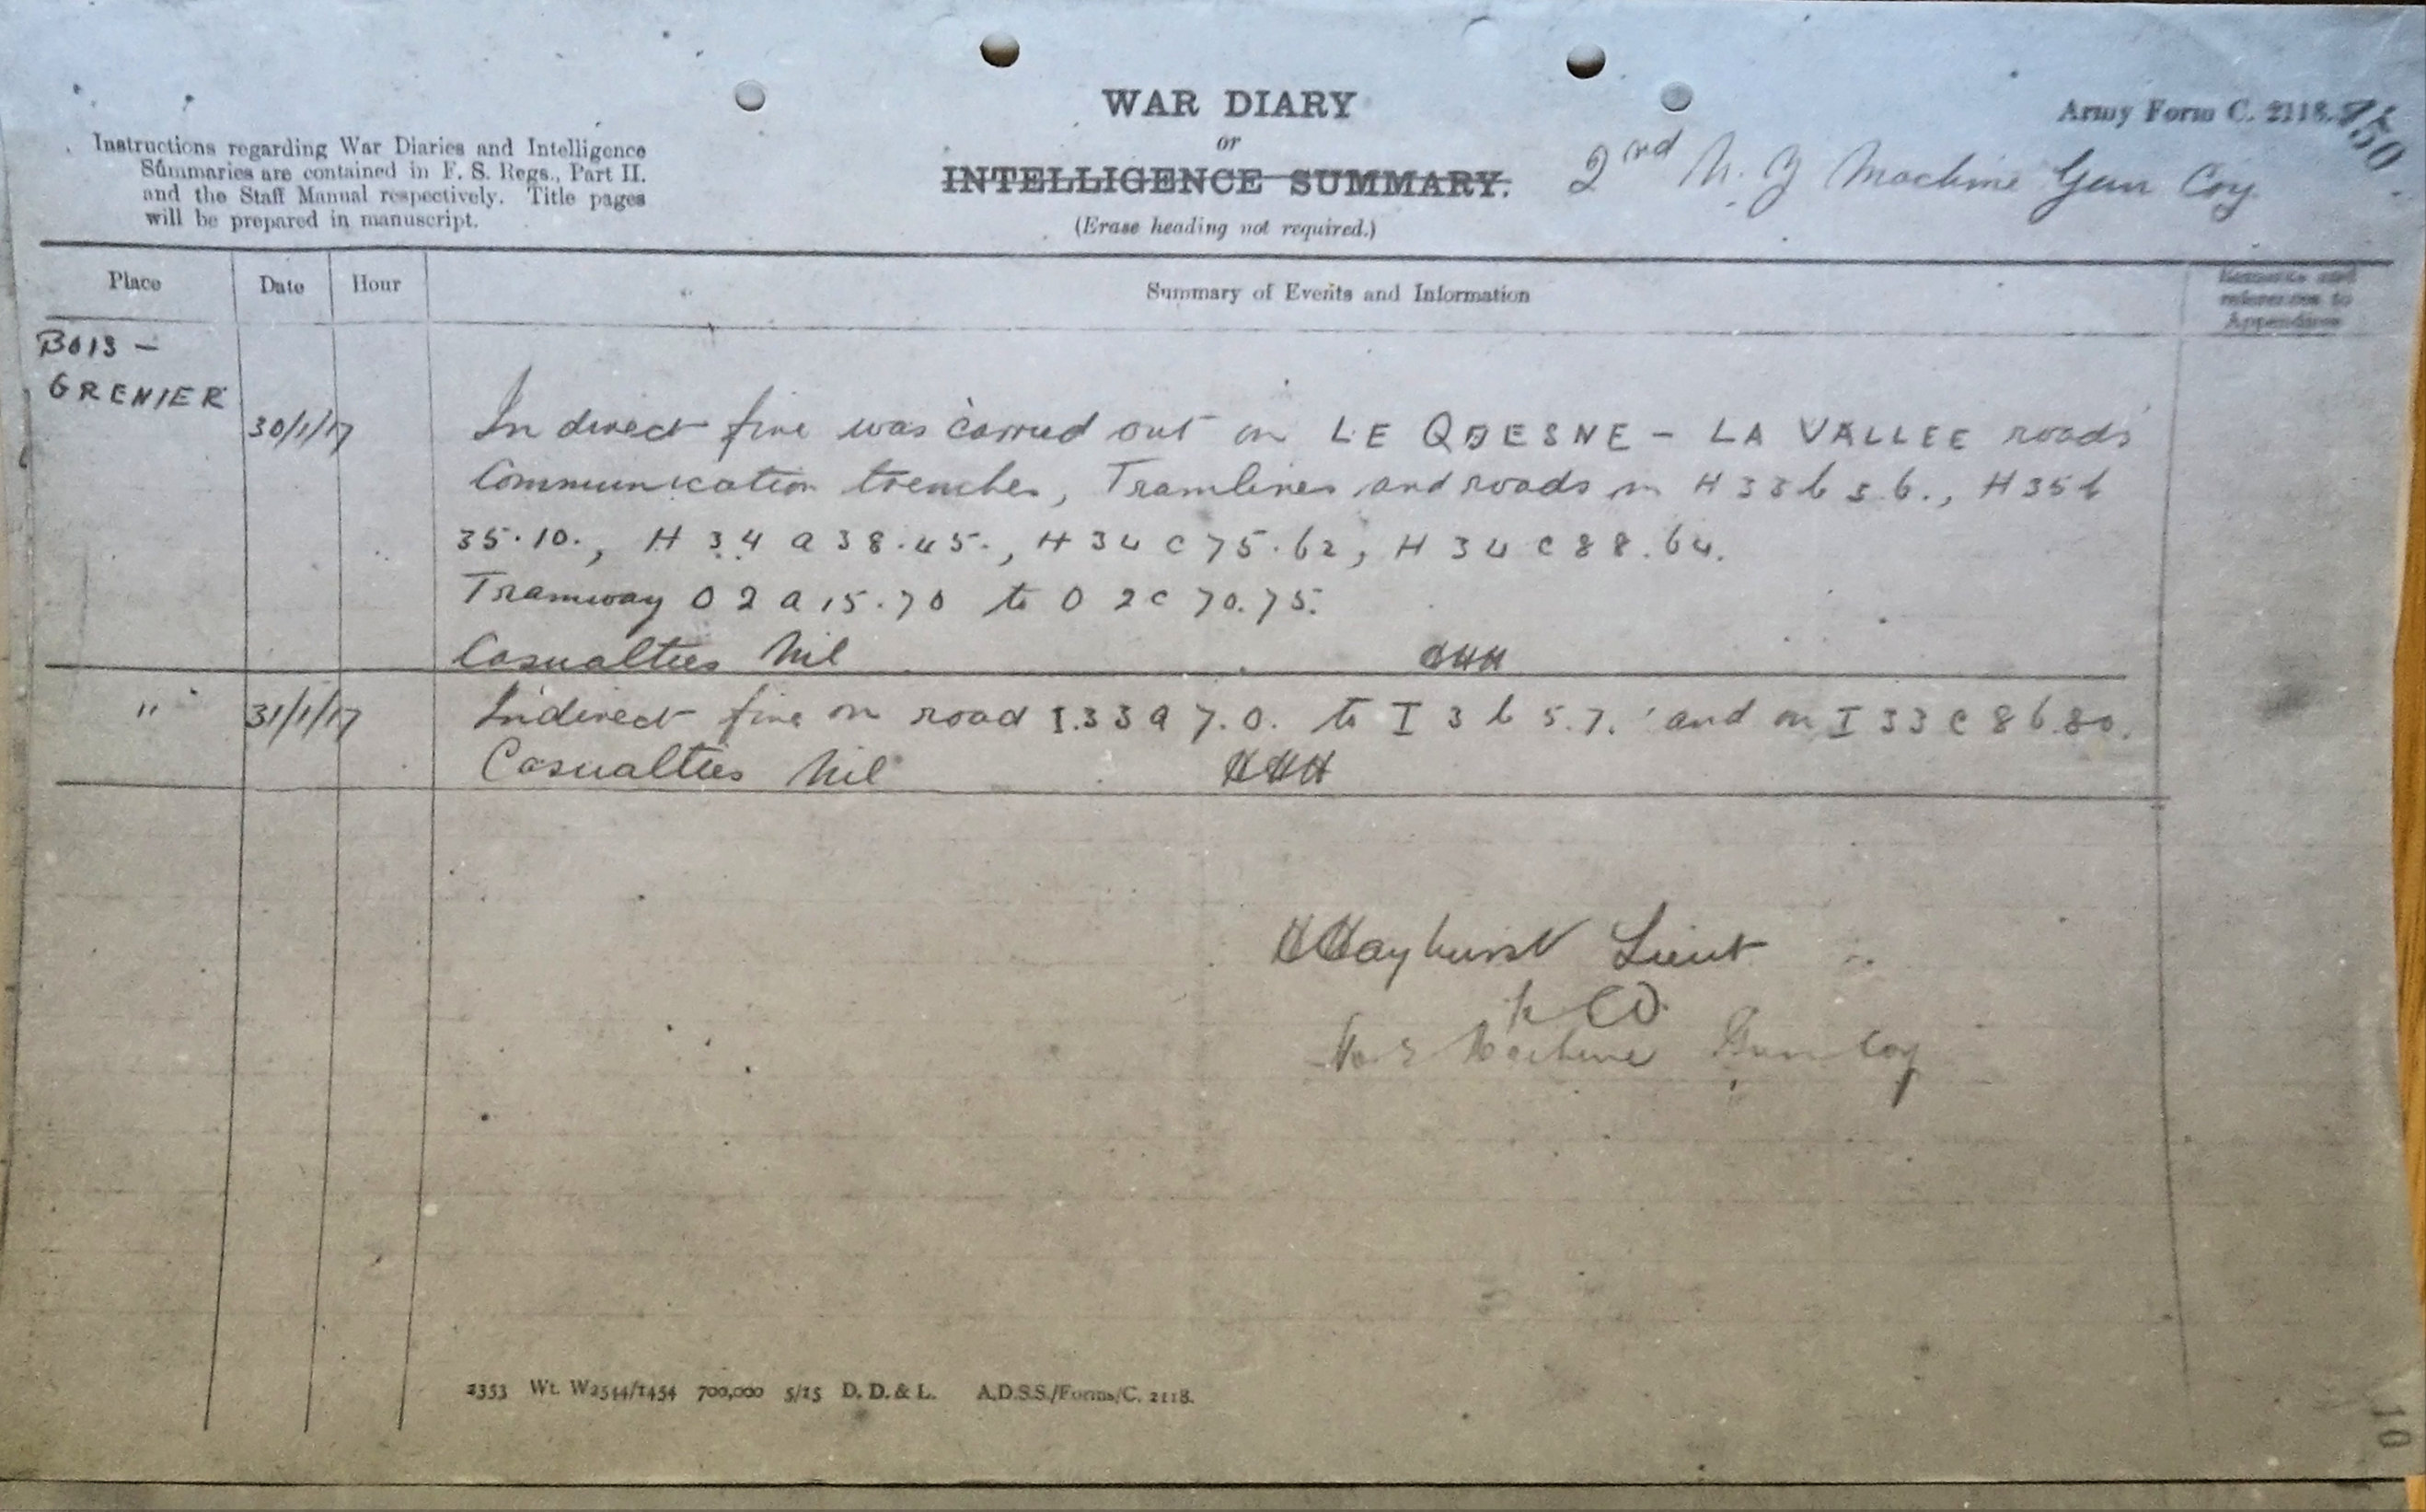 Army Form C. 2118.
WAR DIARY
or
INTELLIGENCE SUMMARY.
(Erase heading not required.)
2nd N. Z Machine Gun Coy
Instructions regarding War Diaries and Intelligence
Summaries are contained in F. S. Regs., Part II.
and the Staff Manual respectively. Title pages
will be prepared in manuscript.
Place Date Hour Summary of Events and Information Remarks and
references to
Appendices
BOIS -
GRENIER
30/1/17 In direct fire was carried out on LE QUESNE - LA VALLEE roads
Communication trenches, Tramlines and roads in H 33 b 5.6., H 35 b
35.10., H 34 a 38.45., H 34 c 75.62, H 34 c 88.64.
Tramway O 2 a 15.70 to O 2 c 70.75.
Casualties Nil
" 31/1/17 Indirect fire on road I.33 a 7.0. to I 3 b 5.7. and on I 33 c 86.80.
Casualties Nil
Hayhurst Lieut
Machine Gun Coy
2353 Wt. W2544/1454 700,000 5/15 D. D. & L. A.D.S.S./Forms/C. 2118.
10